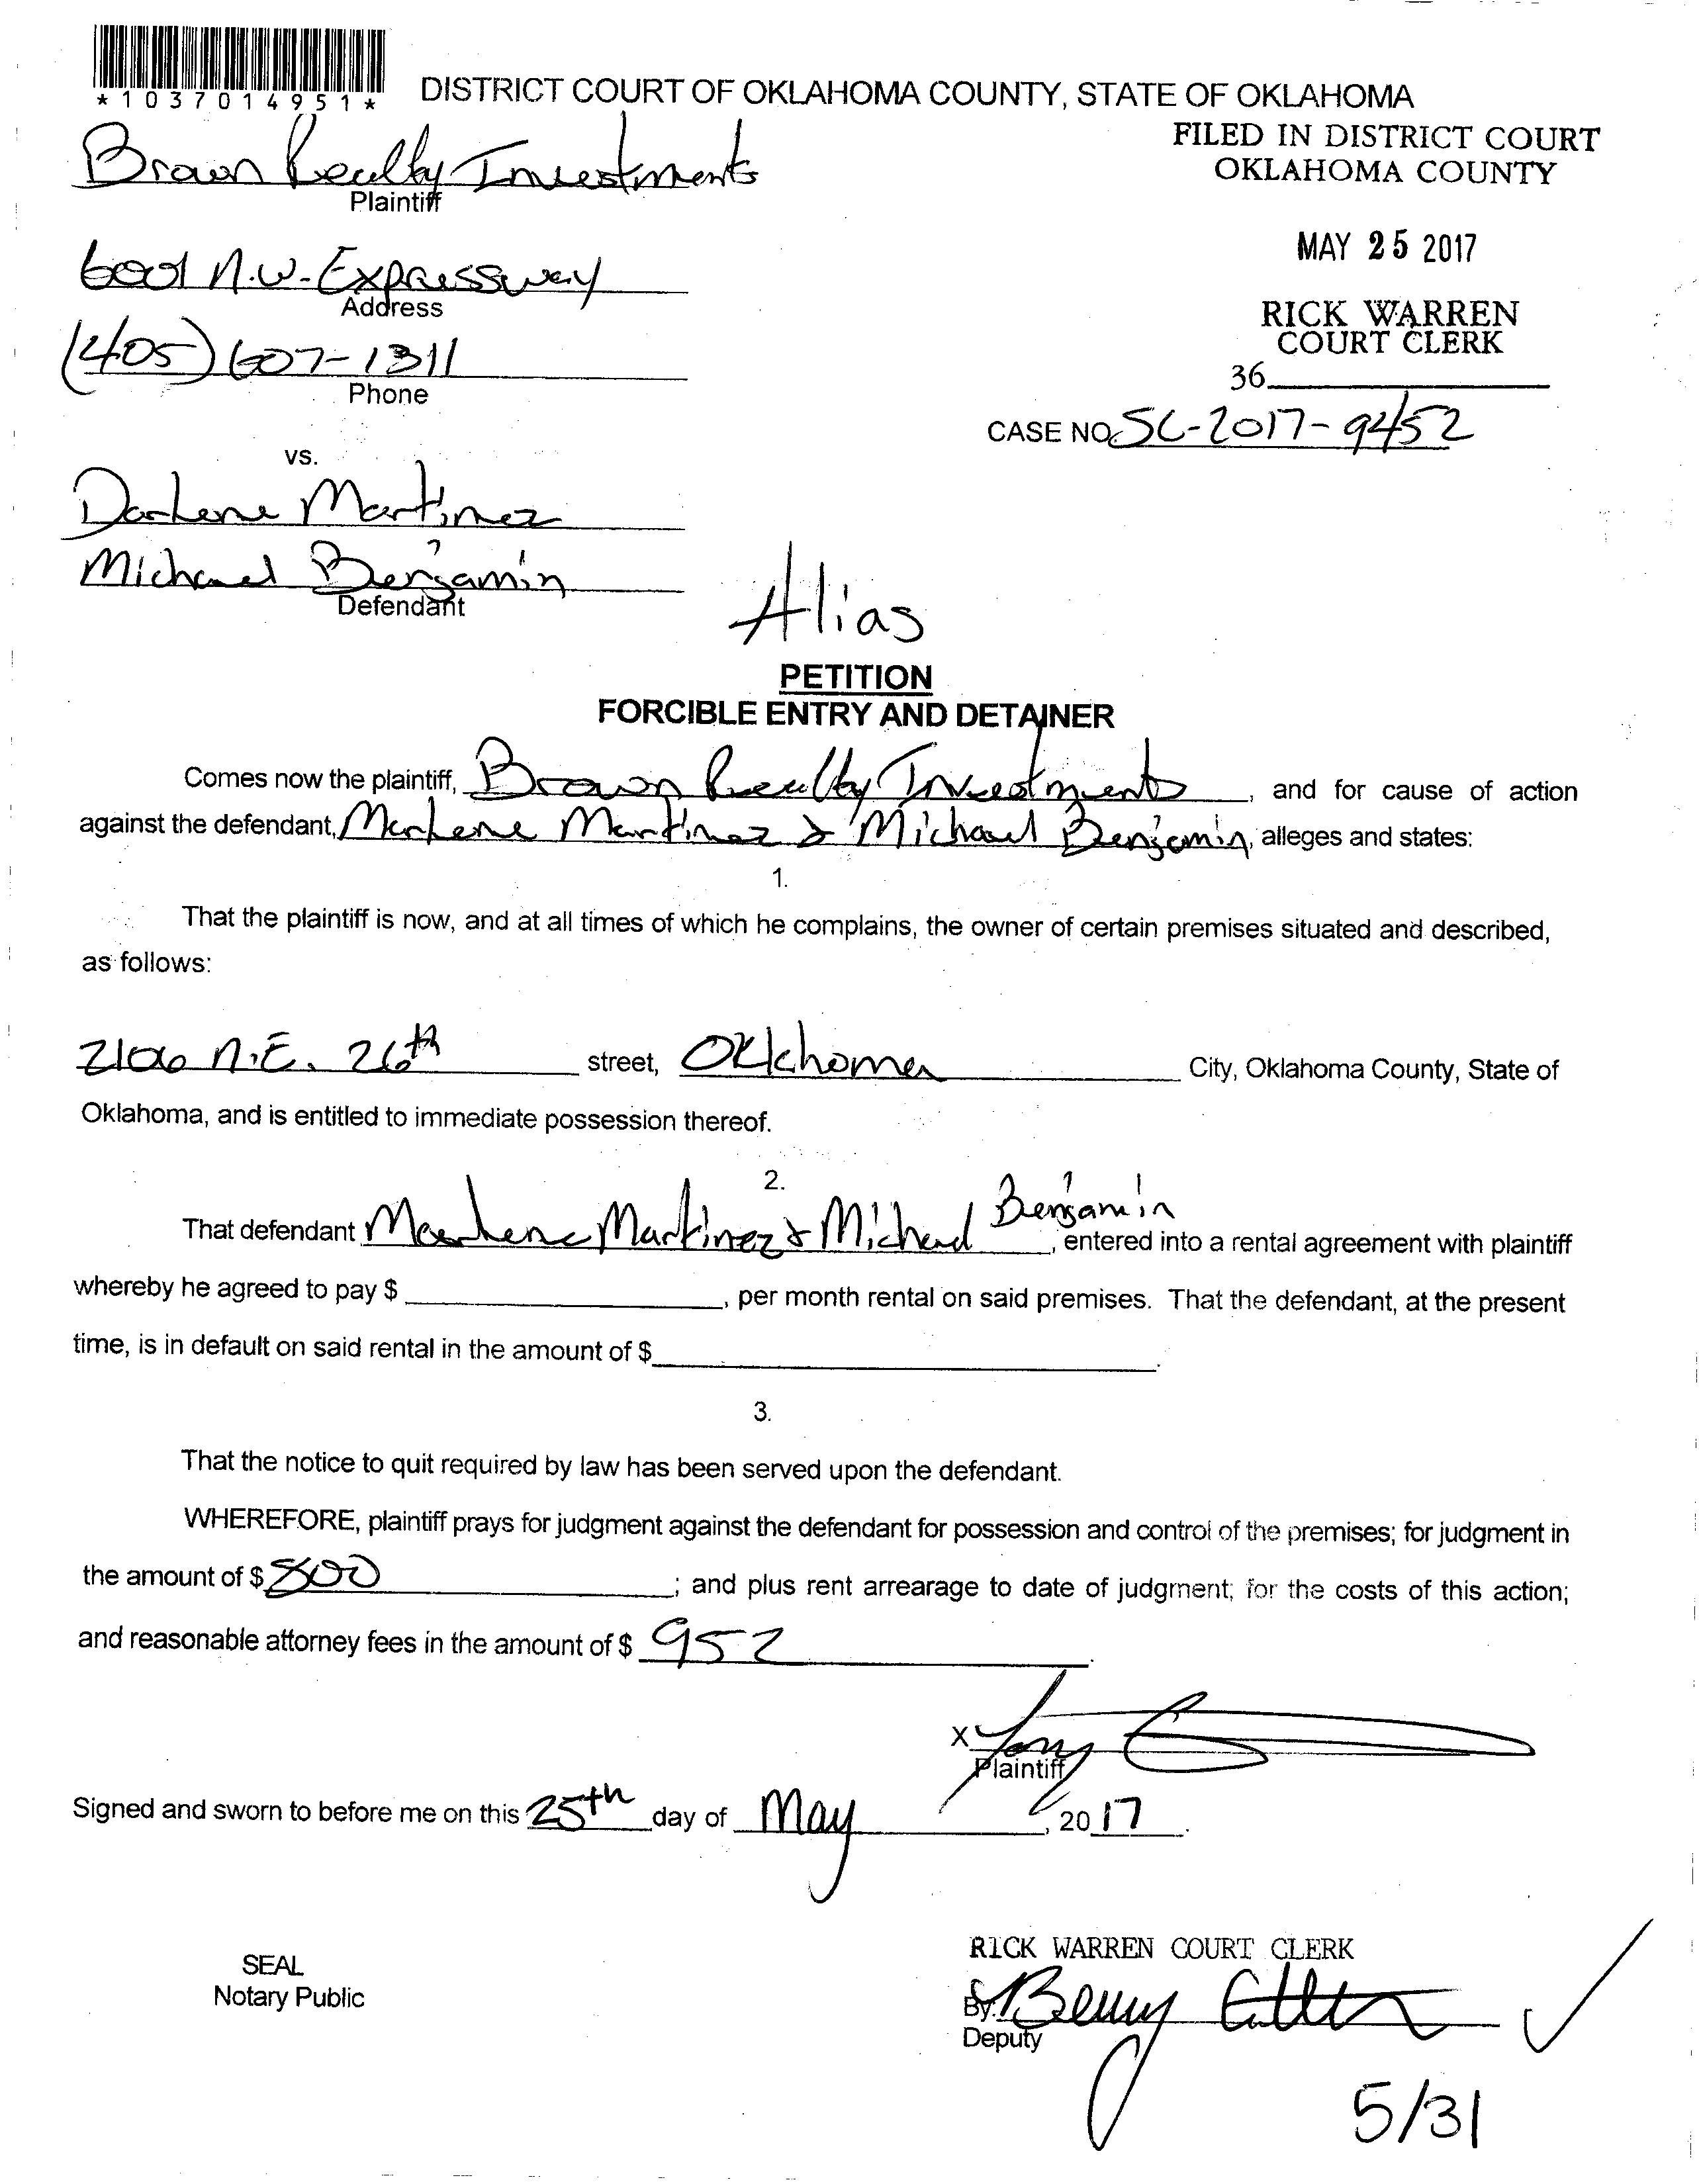 *1037014951*
DISTRICT COURT OF OKLAHOMA COUNTY, STATE OF OKLAHOMA
FILED IN DISTRICT COURT
OKLAHOMA COUNTY
Brown Realty Investments
Plaintiff
MAY 25 2017
6001 N.W. Expressway
Address
RICK WARREN
COURT CLERK
(405) 607-1311
Phone
36
CASE NO. SC-2017-9452
vs.
Darlene Martinez
Michael Benjamin
Defendant
Alias
PETITION
FORCIBLE ENTRY AND DETAINER
Comes now the plaintiff, Brown Realty Investments, and for cause of action
against the defendant, Marlene Martinez & Michael Benjamin, alleges and states:
1.
That the plaintiff is now, and at all times of which he complains, the owner of certain premises situated and described,
as follows:
2106 N.E. 26th street, Oklahoma City, Oklahoma County, State of
Oklahoma, and is entitled to immediate possession thereof.
2.
That defendant Marlene Martinez & Michael Benjamin, entered into a rental agreement with plaintiff
whereby he agreed to pay $, per month rental on said premises. That the defendant, at the present
time, is in default on said rental in the amount of $.
3.
That the notice to quit required by law has been served upon the defendant.
WHEREFORE, plaintiff prays for judgment against the defendant for possession and control of the premises; for judgment in
the amount of $ 800; and plus rent arrearage to date of judgment; for the costs of this action;
and reasonable attorney fees in the amount of $ 952.
X Tony
Plaintiff
Signed and sworn to before me on this 25th day of May, 2017.
RICK WARREN COURT CLERK
SEAL
Notary Public
By:
Deputy
5/31